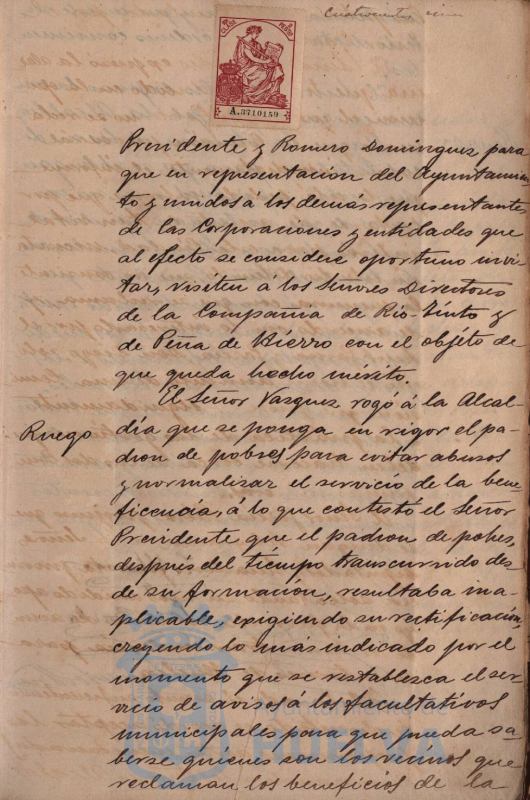 A.3710159
Presidente y Romero Dominguez para
que en representacion del Ayuntamien
to y unidos á los demás representantes
de las Corporaciones y entidades que
al efecto se considere oportuno invi
tar, visiten á los Señores Directores
de la Compañia de Rio-Tinto y
de Peña de Hierro con el objéto de
que queda hecho mérito.
El Señor Vazquez rogó á la Alcal-
Ruego
día que se ponga en vigor el pa
dron de pobres para evitar abusos
y normalizar el servicio de la bene
ficencia, á lo que contestó el Señor
Presidente que el padron de pobres,
después del tiempo transcurrido des
de su formación, resultaba ina
plicable, exigiendo su rectificación,
creyendo lo más indicado por el
momento que se restablezca el ser
vicio de avisos á los facultativos
municipales para que pueda sa
berse quienes son los vecinos que
reclaman los beneficios de la
Ayuntamiento de
HUELVA